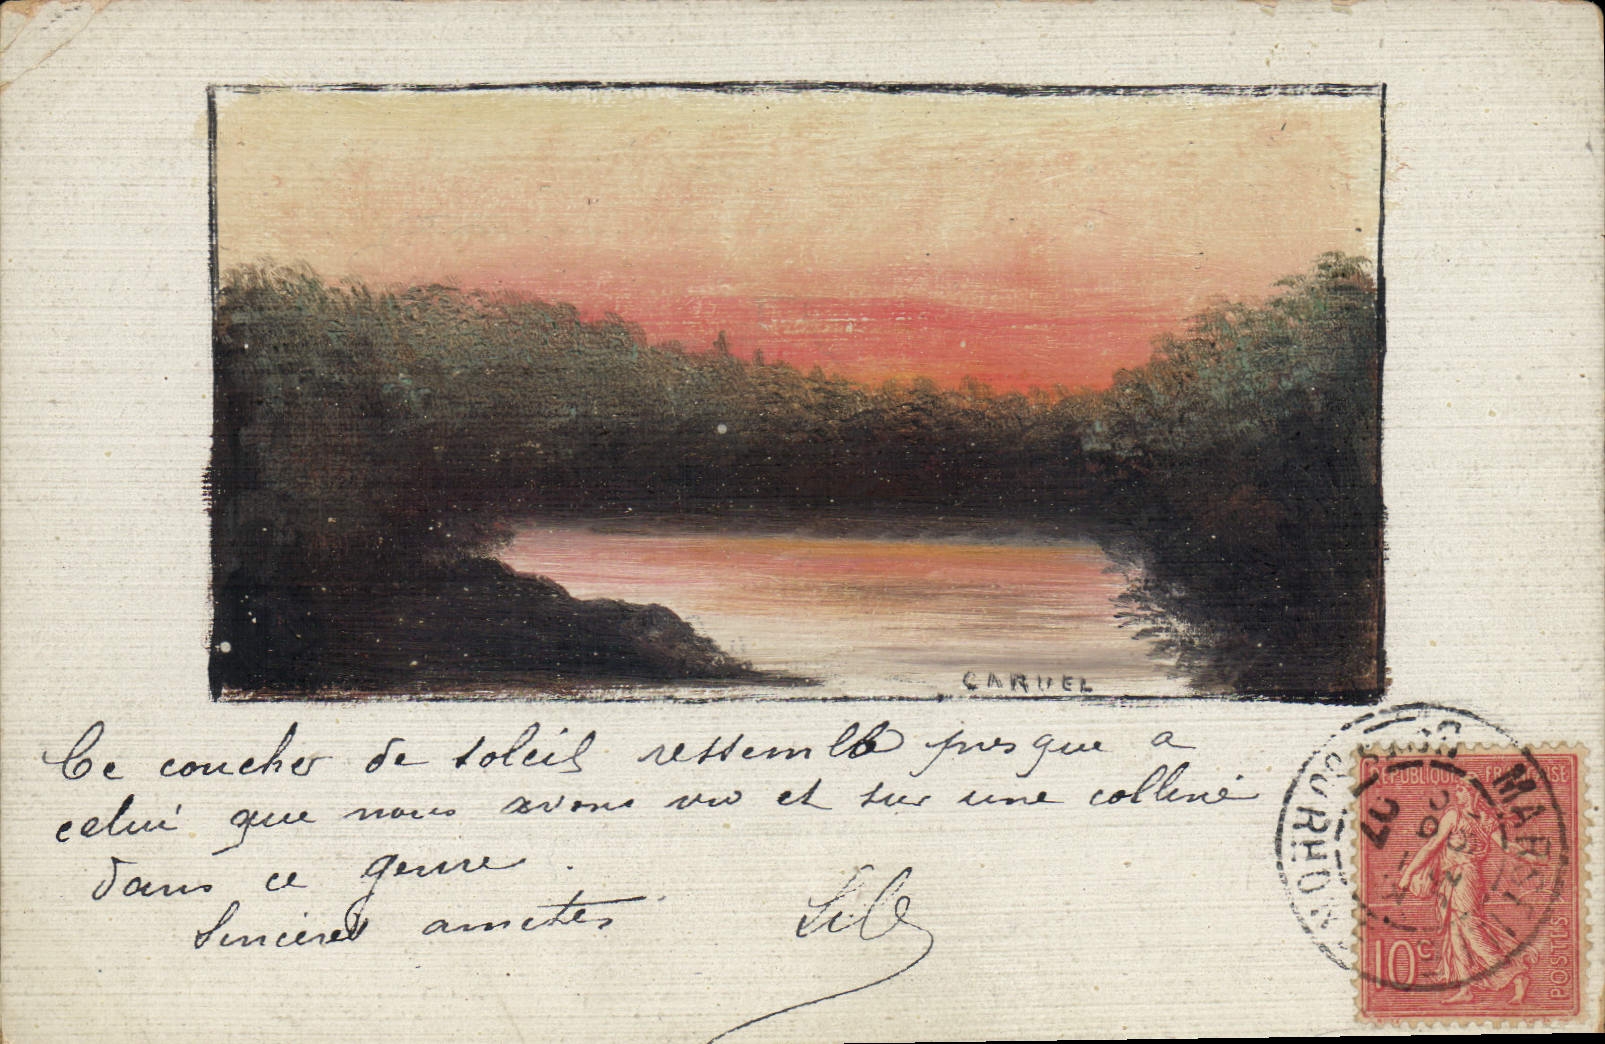 CARUEL
Ce coucher de soleil ressemble presque a
celui que nous avons vu et sur une colline
dans ce genre.
Sincères amitiés
RÉPUBLIQUE FRANÇAISE
10c
POSTES
MARSEILLE
BCHES-DU-RHONE
07